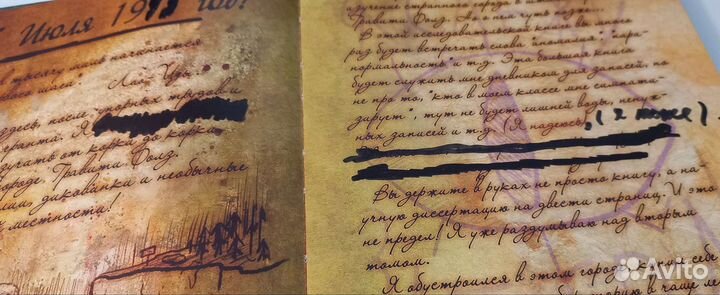 Июля 19
мль начинается
Лао Цзы
здесь, после упорных трудов и
гранта. Я
изучать от корки до корки
городе Гравити Фолз.
диковинки и необычные
местности!
изучение странного города в штате
Гравити Фолз. Но о нём чуть позже...
В этой исследовательской книге вы много
раз будет встречать слова "аномалия", "пара-
нормальность" и т.д. Эта большая книга
будет служить мне дневником для записей, но
не про то, "кто в моём классе мне симпати-
зирует", тут не будет лишней воды, ненуж-
ных записей и т.д. (Я надеюсь) , (я тоже).
Вы держите в руках не просто книгу, а на-
учную диссертацию на двести страниц. И это
не предел! Я уже раздумываю над вторым
томом.
Я обустроился в этом городе,
которую в чаще ле
Avito